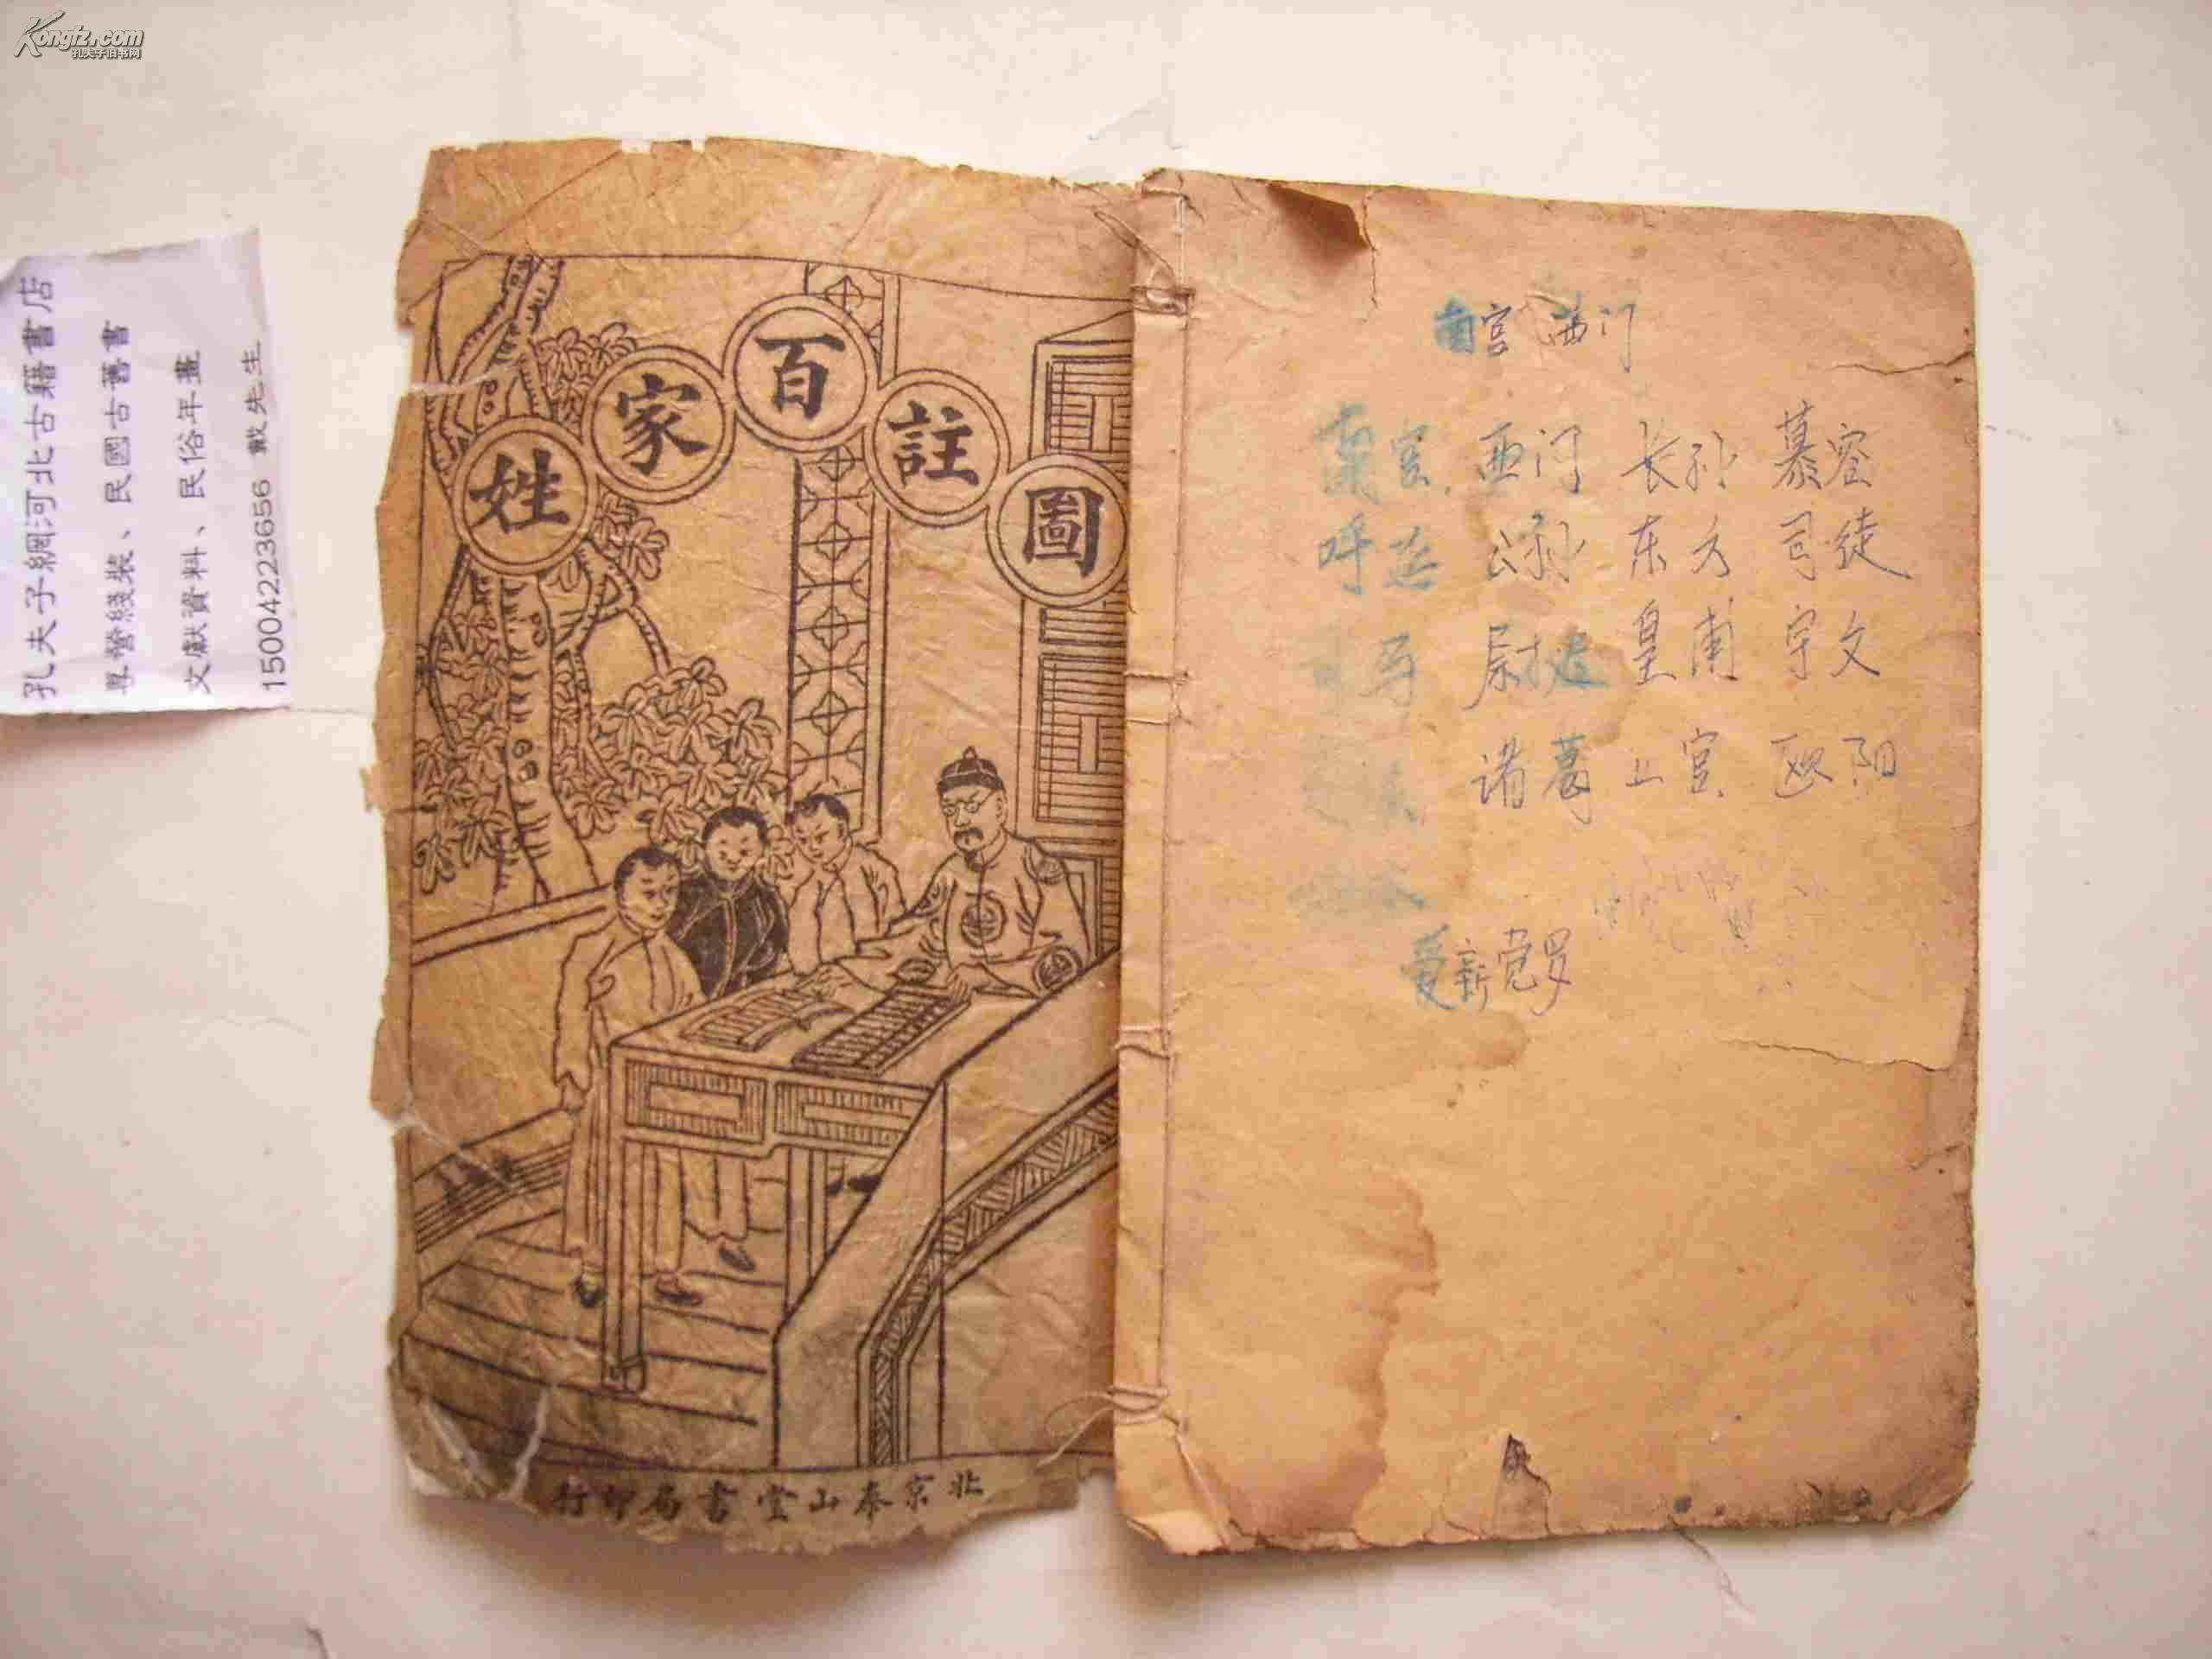 Kongfz.com
孔夫子旧书网
孔夫子網河北古籍書店
專營綫裝、民國古舊書
文獻資料、民俗年畫
15004223656 戴先生
圖註百家姓
北京泰山堂書局印行
南宫 西门
南宫 西门 长孙 慕容
呼延 公孙 东方 司徒
司马 尉迟 皇甫 宇文
诸葛 上官 欧阳
爱新觉罗